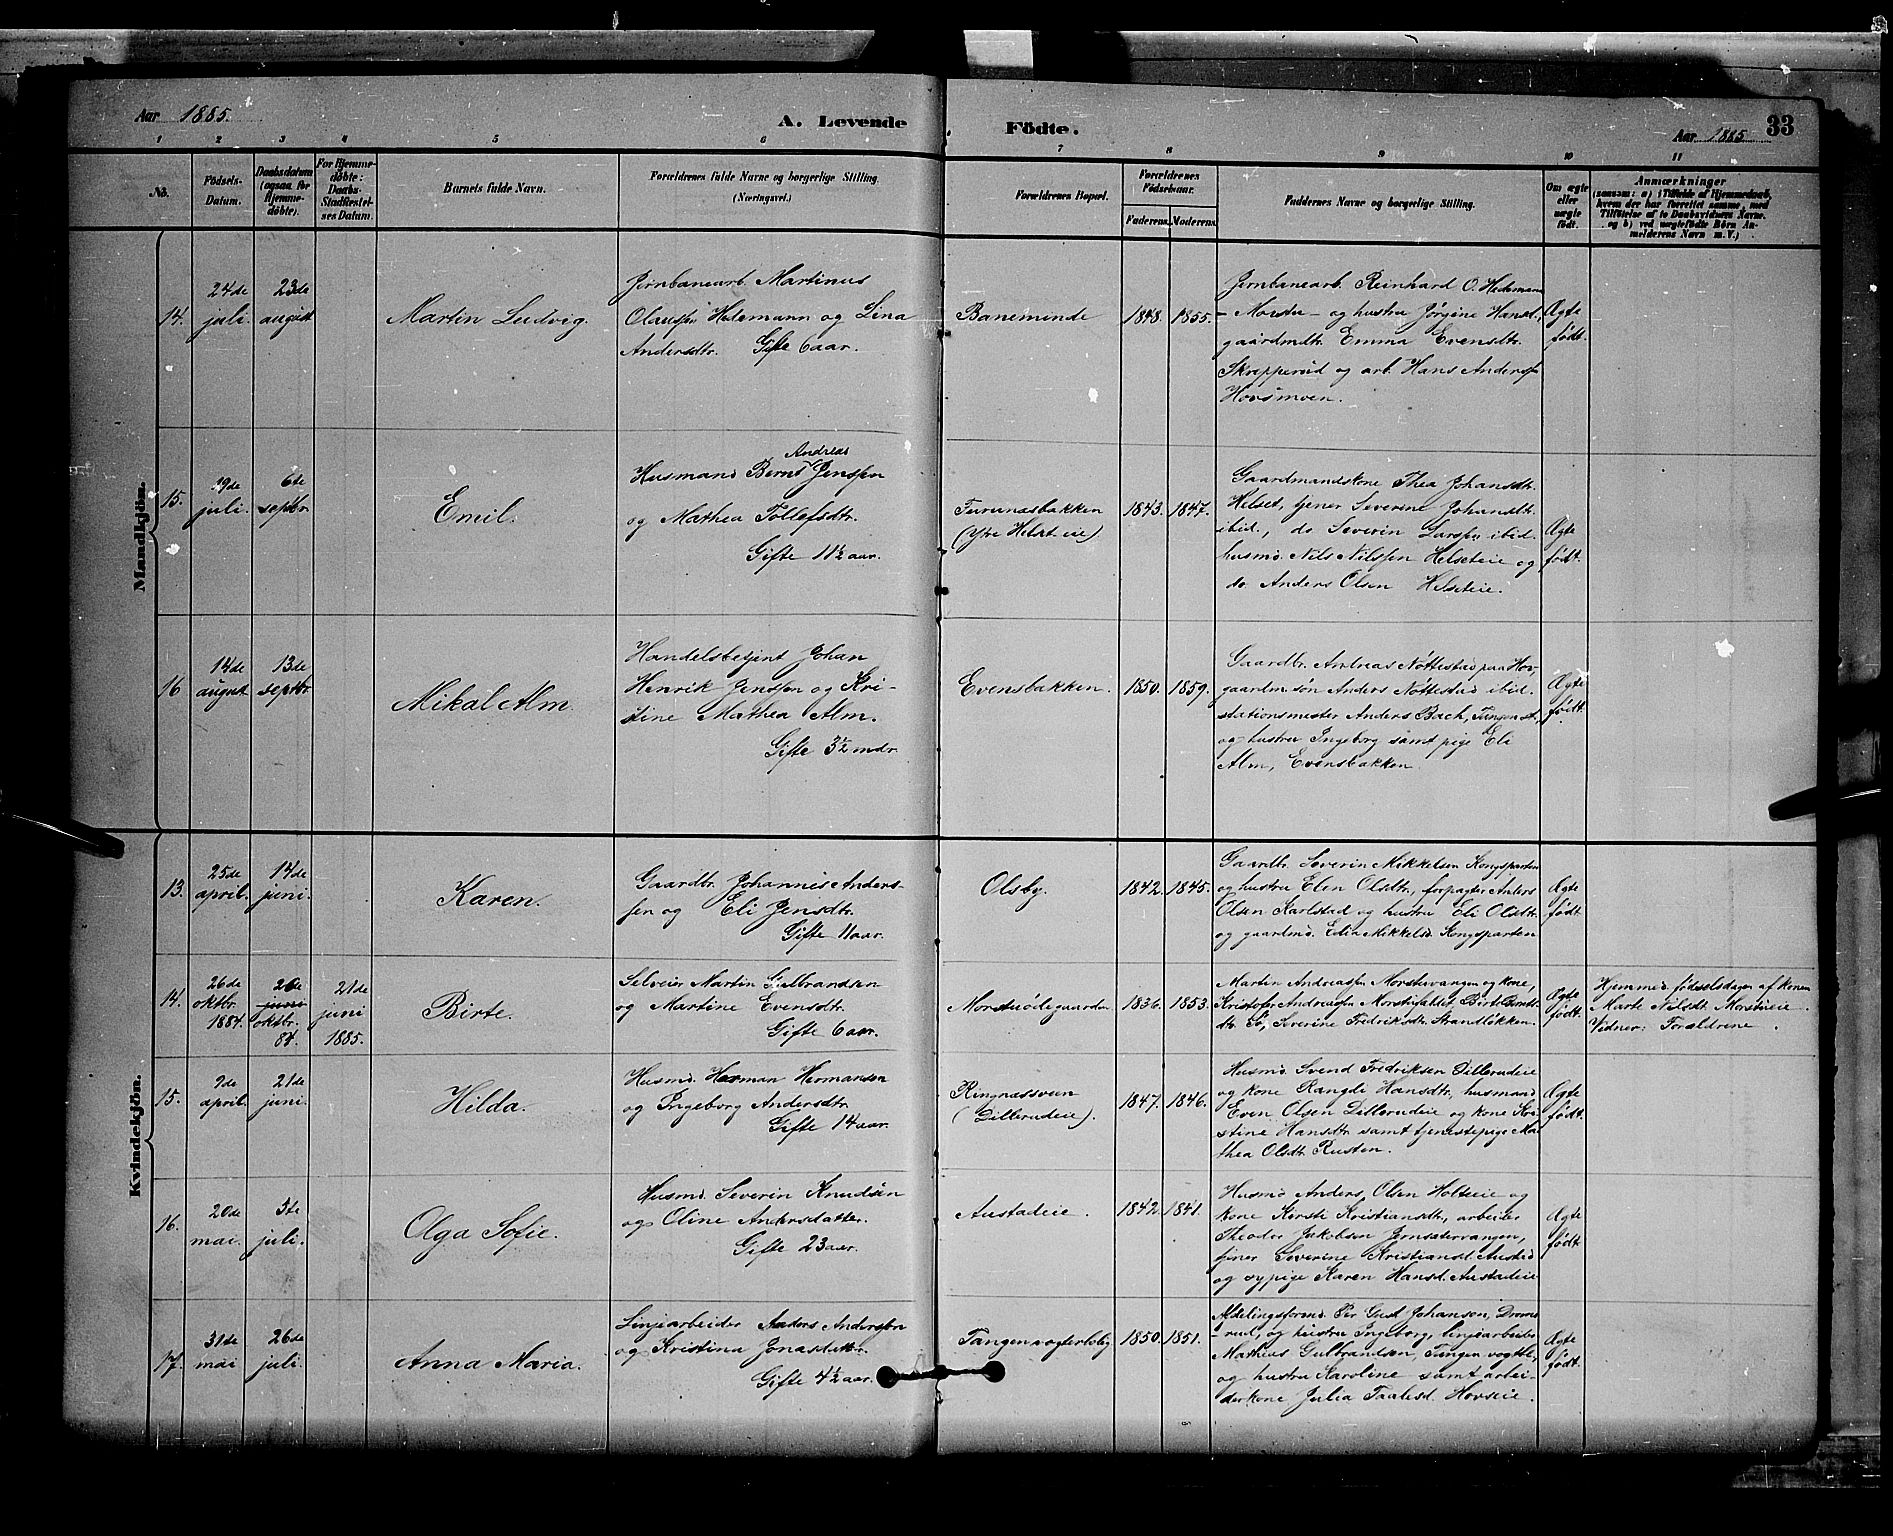 Aar 1885.
A. Levende
Födte.
Aar 1885
33
1
2
3
4
5
6
7
8
9
10
11
No.
Födsels-
Datum.
Daabsdatum
(ogsaa for
Hjemme-
döbte).
For Hjemme-
döbte:
Daabs-
Stadfæstel-
ses Datum.
Barnets fulde Navn.
Forældrenes fulde Navne og borgerlige Stilling.
(Næringsvei.)
Forældrenes Bopæl.
Forældrenes
Födselsaar.
Faderens.
Moderens.
Faddernes Navne og borgerlige Stilling.
Om ægte
eller
uægte
födt.
Anmærkninger
(saasom: a) i Tilfælde af Hjemmedaab,
hvem der har forrettet samme, med
Tilföielse af to Daabsvidners Navne.
og b) ved uægtefödte Börn An-
melderens Navn m. V.)
Mandkjön.
14.
24de
juli.
23de
august
Martin Ludvig.
Jernbanearb. Martinus
Olaussen Hedemann og Lina
Andersdtr. Gifte 6 aar.
Baneminde
1848.
1855.
Jernbanearb. Reinhard O. Hedemann
- Morstu - og hustru Jørgine Hansd.
gaardmdtr. Emma Evensdtr.
Skrepperud og arb. Hans Anderss
Hovsmoen.
Ægte
født.
15.
19de
juli.
6te
septbr.
Emil.
Andreas
Husmand Bernt Jenssen
og Mathea Tollefsdtr.
Gifte 11½ aar.
Furunæsbakken
(Ytre Helset eie)
1843.
1847.
Gaardmandskone Thea Johansdtr.
Helset, tjener Severine Johansdtr.
ibid, do Severin Larssen ibid.
husmd. Nils Nilssen Helseteie og
do Anders Olsen Helseteie.
Ægte
født.
16
14de
august
13de
septbr
Mikal Alm.
Handelsbetjent Johan
Henrik Jenssen og Kri-
stine Mathea Alm.
Gifte 3½ mdr.
Evensbakken.
1850.
1859.
Gaardbr. Andreas Nøttestad paa Hov,
gaardm.søn Anders Nøttestad ibid.
stationsmester Anders Bach, Tangen st.
og hustru Ingeborg samt pige Eli
Alm, Evensbakken.
Ægte
født.
Kvindekjön.
13.
25de
april.
14de
juni.
Karen.
Gaardbr. Johannis Anders-
sen og Eli Jensdtr.
Gifte 11 aar.
Olsby.
1842.
1845.
Gaardbr. Severin Mikkelsen Kongsparten
og hustru Elen Olsdtr, forpagter Anders
Olsen Karlstad og hustru Eli Olsdtr.
og gaardmd. Edia Mikkelsd. Kongsparten
Ægte
født
14.
26de
oktbr.
1884.
26de
juni
oktbr.
84.
21de
juni
1885.
Birte.
Selveier Martin Gulbrandsen
og Martine Evensdtr.
Gifte 6 aar.
Morstuødegaarden
1836.
1853.
Martin Andreassen Morstuvangen og kone,
Kristofer Andreassen Morstufallet Birte Berntd
dtr. So, Severine Fredriksdtr. Strandløkken.
Ægte
født.
Hjemmed. fødselsdagen af konen
Marte Nilsdt. Morstueie.
Vidner: Forældrene.
15.
9de
april.
21de
juni.
Hilda.
Husmd. Herman Hermansen
og Ingeborg Andersdtr.
Gifte 14 aar.
Ringnæssveen
(Dillerudeie).
1847.
1846.
Husmd. Svend Fredriksen Dillerudeie
og kone Rangdi Hansdtr, husmand
Even Olsen Dillerudeie og kone Kri-
stine Hansdtr samt tjenestepige Ma-
thea Olsdtr. Rusten.
Ægte
født.
16.
20de
mai.
5te
juli.
Olga Sofie.
Husmd. Severin Knudsen
og Oline Andersdatter.
Gifte 23 aar.
Austadeie.
1842.
1841.
Husmd. Anders Olsen Holteeie og
kone Kersti Kristiansdtr, arbeider
Theodor Jakobsen Jernsætervangen,
tjener Severine Kristiansd. Austad
og sypige Karen Hansd. Austadeie
Ægte
født.
17.
31de
mai
26de
juli.
Anna Maria.
Linjearbeider Anders Anderssen
og Kristina Jonasdatter.
Gifte 4½ aar.
Tangen vogterbolig
1850.
1851.
Afdelingsformd. Per Gust. Johansen, Drome
rud, og hustru Ingeborg, linjearbeider
Mathias Gulbrandsen, Tangen vogtb.,
og hustru Karoline samt arbei-
derkone Julia Taalesd. Hovseie.
Ægte
født.